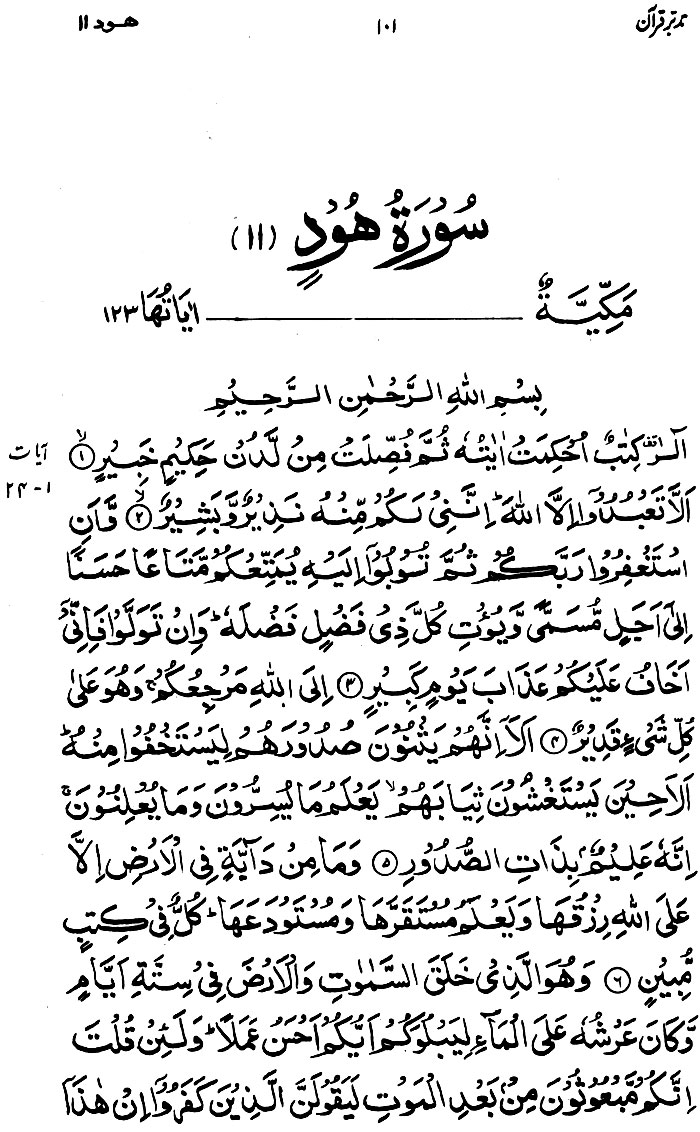 تدبر قرآن ۱۰۱ هود ۱۱
سُورَةُ هُودٍ (۱۱)
مَكِّيَّةٌ ایَاتُهَا ۱۲۳
بِسْمِ اللهِ الرَّحْمٰنِ الرَّحِيْمِ
الٓرٰ كِتٰبٌ اُحْكِمَتْ اٰيٰتُهٗ ثُمَّ فُصِّلَتْ مِنْ لَّدُنْ حَكِيْمٍ خَبِيْرٍ ۱
آيات
۱-۲۴
اَلَّا تَعْبُدُوْٓا اِلَّا اللهَ ؕ اِنَّنِيْ لَكُمْ مِّنْهُ نَذِيْرٌ وَّبَشِيْرٌ ۲ وَّاَنِ
اسْتَغْفِرُوْا رَبَّكُمْ ثُمَّ تُوْبُوْٓا اِلَيْهِ يُمَتِّعْكُمْ مَّتَاعًا حَسَنًا
اِلٰٓى اَجَلٍ مُّسَمًّى وَّيُؤْتِ كُلَّ ذِيْ فَضْلٍ فَضْلَهٗ ؕ وَاِنْ تَوَلَّوْا فَاِنِّيْٓ
اَخَافُ عَلَيْكُمْ عَذَابَ يَوْمٍ كَبِيْرٍ ۳ اِلَى اللهِ مَرْجِعُكُمْ ۚ وَهُوَ عَلٰى
كُلِّ شَيْءٍ قَدِيْرٌ ۴ اَلَآ اِنَّهُمْ يَثْنُوْنَ صُدُوْرَهُمْ لِيَسْتَخْفُوْا مِنْهُ ؕ
اَلَا حِيْنَ يَسْتَغْشُوْنَ ثِيَابَهُمْ ۙ يَعْلَمُ مَا يُسِرُّوْنَ وَمَا يُعْلِنُوْنَ ۚ
اِنَّهٗ عَلِيْمٌۢ بِذَاتِ الصُّدُوْرِ ۵ وَمَا مِنْ دَآبَّةٍ فِي الْاَرْضِ اِلَّا
عَلَى اللهِ رِزْقُهَا وَيَعْلَمُ مُسْتَقَرَّهَا وَمُسْتَوْدَعَهَا ؕ كُلٌّ فِيْ كِتٰبٍ
مُّبِيْنٍ ۶ وَهُوَ الَّذِيْ خَلَقَ السَّمٰوٰتِ وَالْاَرْضَ فِيْ سِتَّةِ اَيَّامٍ
وَّكَانَ عَرْشُهٗ عَلَى الْمَآءِ لِيَبْلُوَكُمْ اَيُّكُمْ اَحْسَنُ عَمَلًا ؕ وَلَئِنْ قُلْتَ
اِنَّكُمْ مَّبْعُوْثُوْنَ مِنْۢ بَعْدِ الْمَوْتِ لَيَقُوْلَنَّ الَّذِيْنَ كَفَرُوْٓا اِنْ هٰذَآ